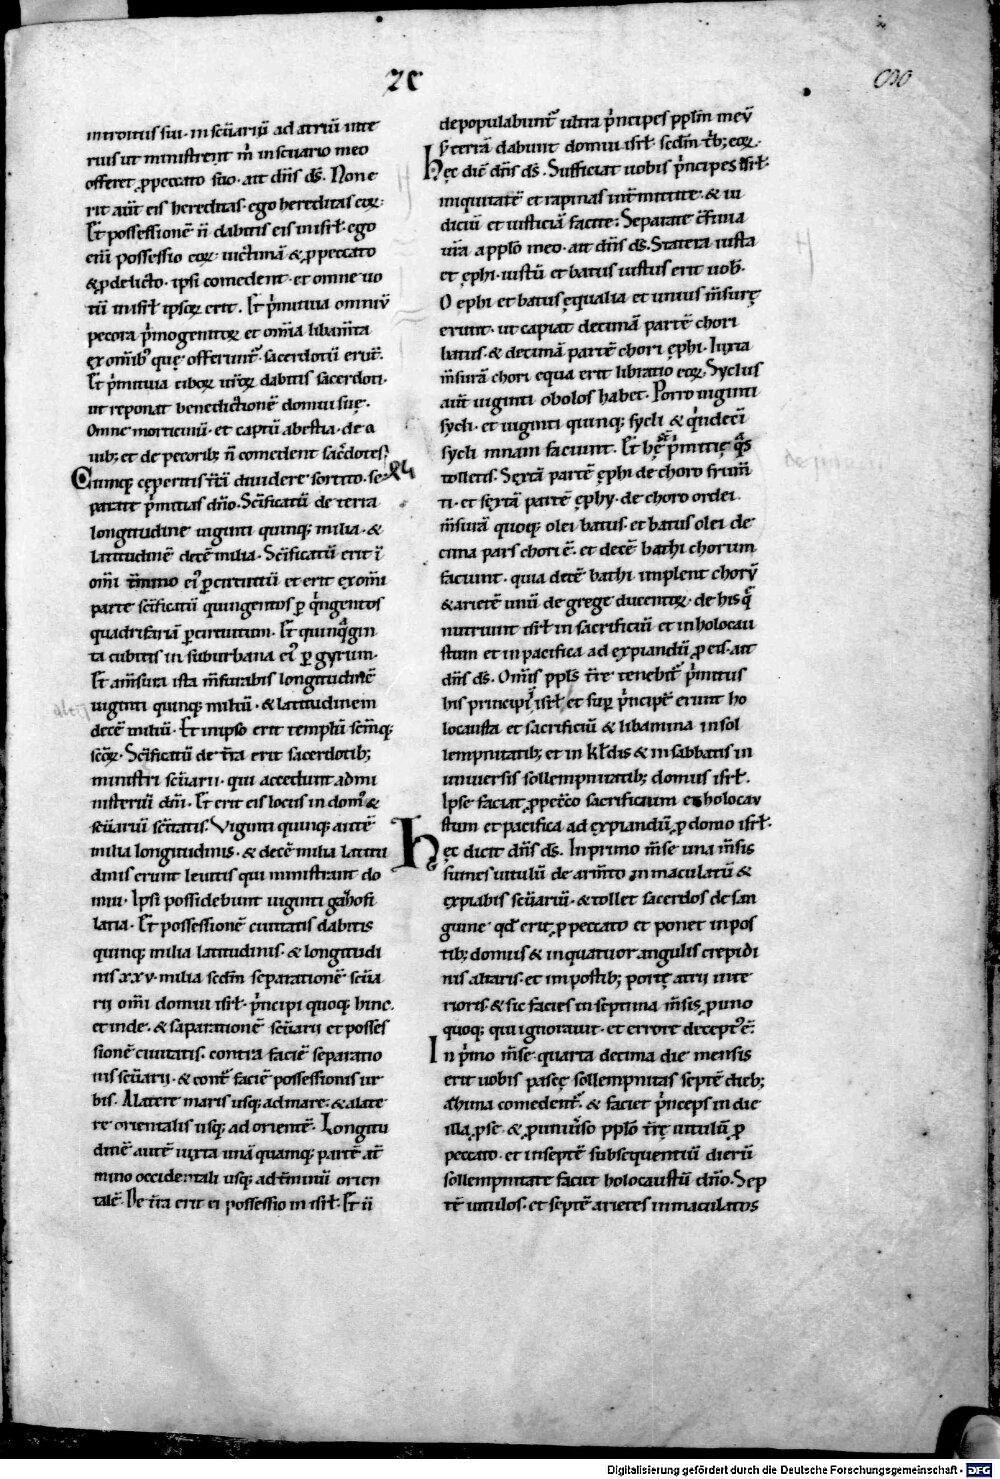 introitus sui · in scūariū ad atriū inte
rius ut ministrent m̄ in scuario meo
offeret ꝓ peccato suo · ait dn̄s ds̄. Non e
rit aūt eis hereditas · ego hereditas eoꝝ ·
Et̄ possessionē n̄ dabitis eis in isrł · ego
enī possessio eoꝝ · uictimā & ꝓ peccato
& ꝓ delicto · ipsi comedent · et omne uo
tū in isrł ipsoꝝ erit . Et̄ p̍mitiua omniū
pecora p̍mogenitoꝝ et om̄ia libam̄ta
ex omibꝰ quę offerunt᷑ · sacerdotū erūt .
Et̄ p̍mitiua ciboꝝ ur̄oꝝ dabitis sacerdoti ·
ut reponat benedictionē domui suę .
Omne morticinū · et captū a bestia · de a
uibꝫ et de pecoribꝫ n̄ comedent sac̄dotes .
Cumqꝫ cęperitis t̄rā diuidere sortito · se
parate p̍mitias dn̄o · Sc̄ificatū de terra
longitudine uiginti quinqꝫ milia · &
latitudinē decē milia · Sc̄ificatū erit ī
om̄i t̄mino eiꝰ ꝑ circuitū et erit ex om̄i
parte sc̄ificatū quingentos ꝑ q̍ngentos
quadrifariā ꝑ circuitum . Et̄ quinqᷓgin
ta cubitis in suburbana eiꝰ ꝑ gyrum ·
Et̄ a m̄sura ista m̄surabis longitudinē
uiginti quinqꝫ miliū · & latitudinem
decē miliū · Et̄ in ipso erit templū sc̄m̄qꝫ
sc̄oꝝ · Sc̄ificatū de t̄ra erit sacerdotibꝫ
ministri scūarii · qui accedunt ad mi
nisterū dn̄i · Et̄ erit eis locus in domꝰ &
scūariū sc̄itatis . Viginti quinqꝫ autē
milia longitudinis · & decē milia latitu
dinis erunt leuitis qui ministrant do
mui · Ipsi possidebunt uiginti gazhofi
latia · Et̄ possessionē ciuitatis dabitis
quinqꝫ milia latitudinis · & longitudi
nis xxv · milia scdm̄ separationē scūa
rii om̄i domui isrł · p̍ncipi quoqꝫ hinc ·
et inde · & saparationē scūarii et posses
sionē ciuitatis · contra faciē separatio
nis scūarii · & cont᷑ faciē possessionis ur
bis · A latere maris usqꝫ ad mare · & a late
re orientalis usqꝫ ad orientē · Longitu
dinē autē iuxta unā quamqꝫ partē a t̄
mino occidentali usqꝫ ad t̄minū orien
talē · De t̄ra erit ei possessio in isrł · Et̄ n̄
depopulabunt᷑ ultra p̍ncipes ppl̄m meū
s; terrā dabunt domui isrł scdm̄ tb̍ꝫ eoꝝ .
Hęc dic̄ dn̄s ds̄ . Sufficiat uobis p̍ncipes isrł
iniquitatē et rapinas int̄mittite · & iu
diciū et iusticiā facite · Separate c̄finia
ur̄a a pplo meo · ait dn̄s ds̄ . Statera iusta
et ęphi · iustū et batus iustus erit uob̄ ·
O ephi et batus ęqualia et unius m̄surę
erunt · ut capiat decimā partē chori
batus · & decimā partē chori ęphi · Iuxta
m̄surā chori equa erit libratio eoꝝ . Syclus
aūt uiginti obolos habet . Porro uiginti
sycli · et uiginti quinqꝫ sycli & q̍ndeci
sycli mnam faciunt . Et̄ hę st̄ p̍mitię qᷓs
tolletis . Sextā partē ęphi de choro frum̄
ti · et sextā partē ęphy · de choro ordei ·
m̄surā quoqꝫ olei batus · et batus olei de
cima pars chori ē · et decē bathi chorum
faciunt · quia decē bathi · implent chorū
& arietē unū de grege ducentoꝝ · de his qᷓ
nutriunt isrł in sacrificiū et in holocau
stum et in pacifica ad expiandū ꝓ eis · ait
dn̄s ds̄ . Omīs ppl̄s t̄rę tenebit᷑ p̍mitiis
his principi ī isrł et suꝑ p̍ncipē erunt ho
locausta et sacrificiū & libamina in sol
lempnitatibꝫ et in kl̄dis & in sabbatis in
uniuersis sollempnitatibꝫ domus isrł .
Ipse faciat ꝓ pecc̄o sacrificium et holocau
stum et pacifica ad expiandū ꝓ domo isrł ·
Hęc dicit dn̄s ds̄ . In primo m̄se una m̄sis
sumes uitulū de arm̄to inmaculatū &
expiabis scūariū · & tollet sacerdos de san
guine qd̄ erit ꝓ peccato et ponet in pos
tibꝫ domus & in quatuor angulis crepidi
nis altaris · et in postibꝫ portę atrii inte
rioris · & sic facies in septima m̄sis ꝓ uno
quoqꝫ qui ignorauit · et errore deceptꝰ ē ·
In p̍mo m̄se · quarta decima die mensis
erit uobis pascę sollempnitas septē diebꝫ
azhima comedent᷑ . & faciet p̍nceps in die
illa ꝓ se · & ꝓ uniuso pplo t̄rę uitulū ꝓ
peccato · et in septē subsequentiū dierū
sollempnitate faciet holocaustū dn̄o . Sep
tē uitulos · et septē arietes inmaculatos
Digitalisierung gefördert durch die Deutsche Forschungsgemeinschaft - DFG